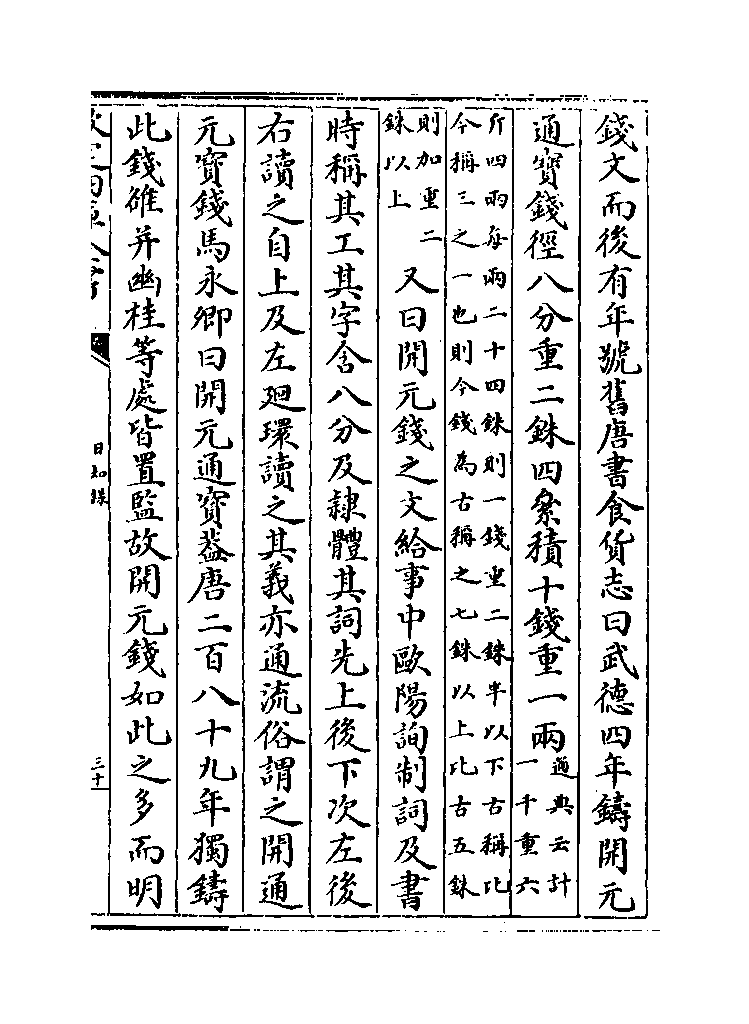 錢文而後有年號舊唐書食貨志曰武德四年鑄開元
通寳錢徑八分重二銖四絫積十錢重一兩通典云計
一千重六
斤四兩每兩二十四銖則一錢重二銖半以下古稱比
今稱三之一也則今錢為古稱之七銖以上比古五銖
則加重二
銖以上
又曰開元錢之文給事中歐陽詢制詞及書
時稱其工其字含八分及隷體其詞先上後下次左後
右讀之自上及左廻環讀之其義亦通流俗謂之開通
元寳錢馬永卿曰開元通寳葢唐二百八十九年獨鑄
此錢雒并幽桂等處皆置監故開元錢如此之多而明
日知録
三十